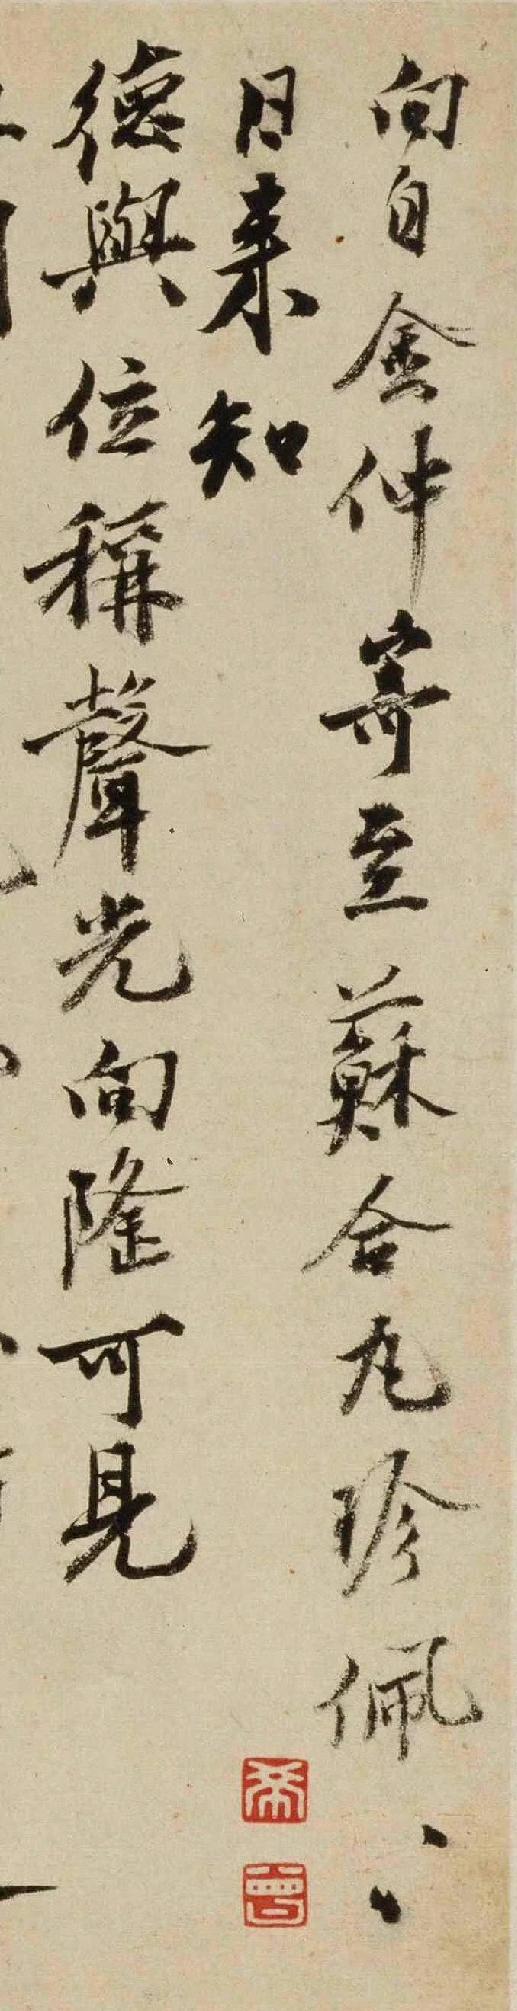 向自金仲寄至蘇合丸珍佩〻
日來知
德與位稱聲光向隆可見
希
曾